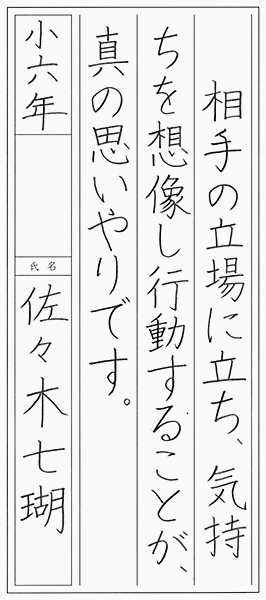 相手の立場に立ち、気持
ちを想像し行動することが、
真の思いやりです。
小六年
氏名
佐々木七瑚